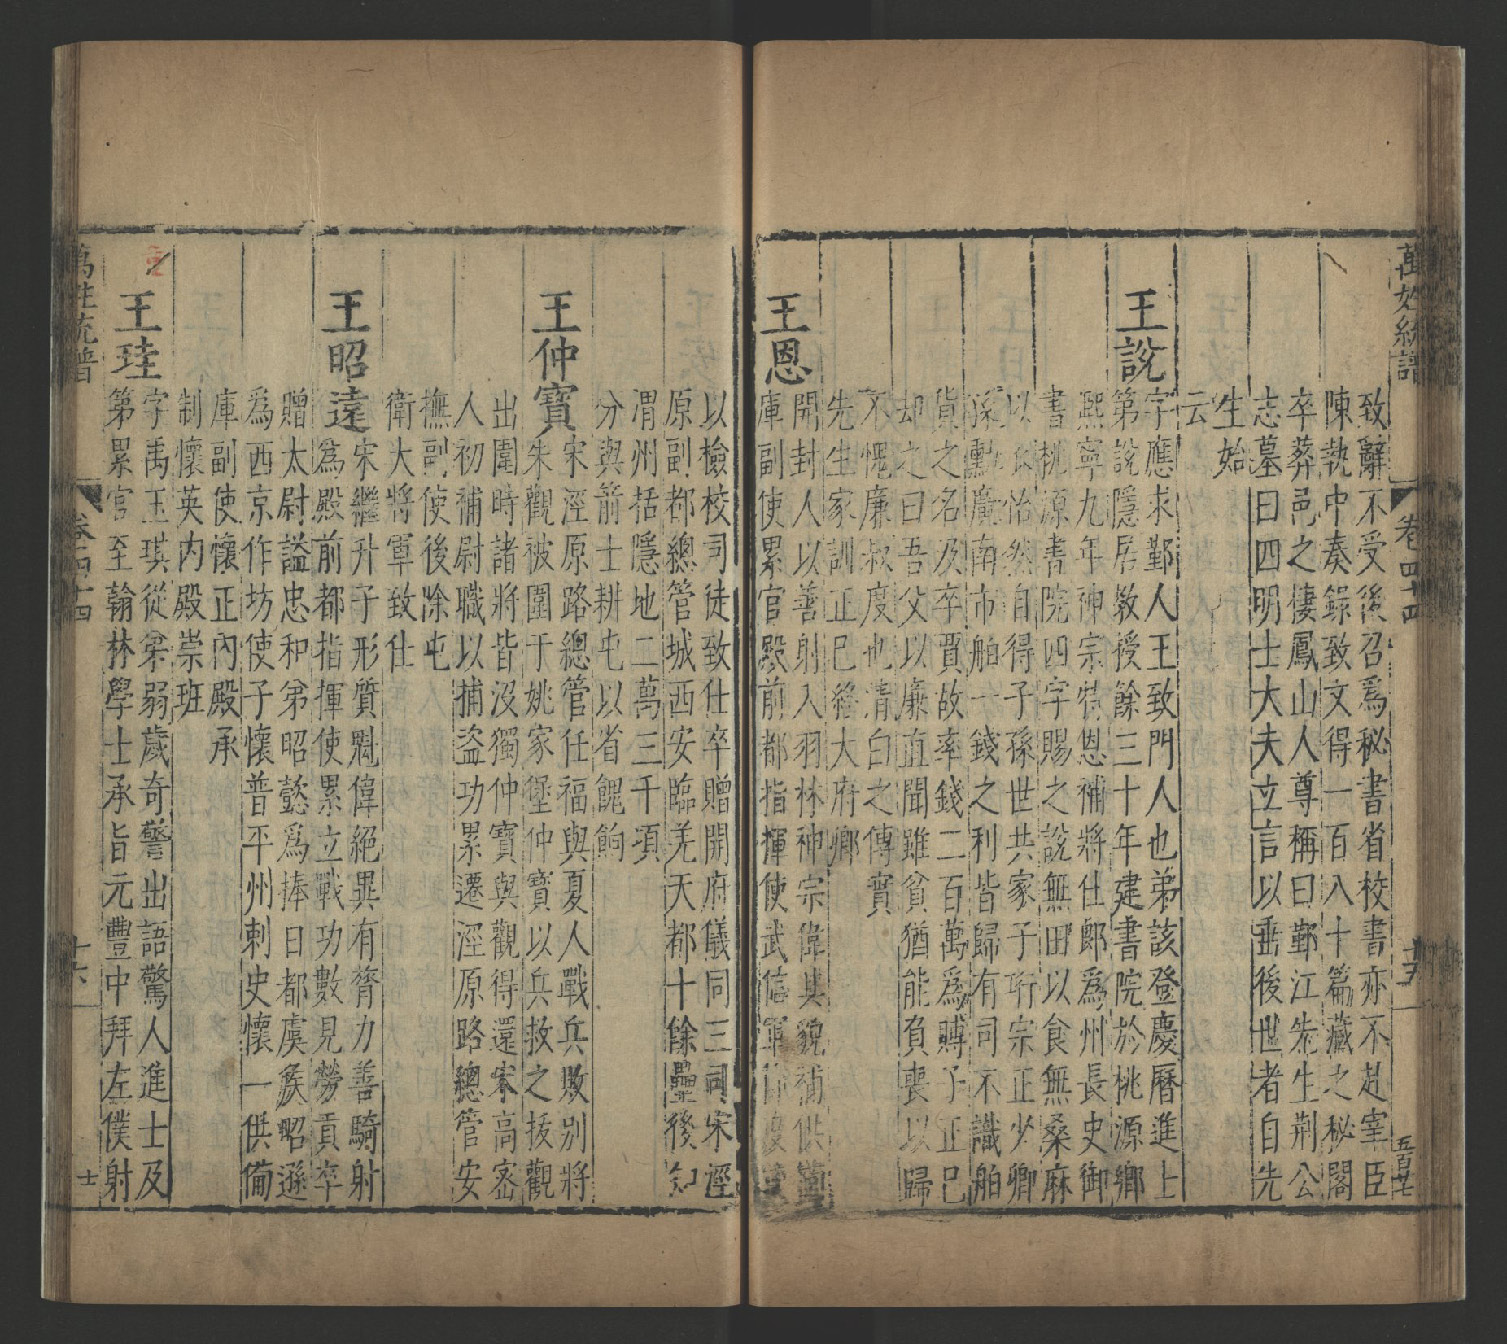 萬姓統譜 卷四十四 十五 五百廿七
致辭不受後召爲秘書省校書亦不赴宰臣
陳執中奏錄致文得一百八十篇藏之秘閣
卒葬邑之棲鳳山人尊稱曰鄞江先生荆公
志墓曰四明士大夫立言以垂後世者自先
生始
云
王說 字應求鄞人王致門人也弟該登慶曆進士
第說隱居敎授餘三十年建書院於桃源鄉
熙寧九年神宗特恩補將仕郎爲州長史御
書桃源書院四字賜之說無田以食無桑麻
以衣怡然自得子孫世共家子珩宗正少卿
孫勳廣南市舶一錢之利皆歸有司不識舶
貨之名及卒賈故率錢二百萬爲賻子正己
却之曰吾父以廉直聞雖貧猶能負喪以歸
不愧廉叔度也清白之傳實
先生家訓正已後大府卿
王恩 開封人以善射入羽林神宗偉其貌補供備
庫副使累官殿前都指揮使武信軍節度使
以檢校司徒致仕卒贈開府儀同三司宋涇
原副都總管城西安臨羌天都十餘壘後知
渭州括隱地二萬三千項
分與箭士耕屯以省餽餉
王仲寶 宋涇原路總管任福與夏人戰兵敗别將
朱觀被圍于姚家堡仲寶以兵救之拔觀
出圍時諸將皆沒獨仲寶與觀得還宋高密
人初補尉職以捕盗功累遷涇原路總管安
撫副使後除屯
衛大將軍致仕
王昭遠 宋繼升子形質魁偉絕異有膂力善騎射
爲殿前都指揮使累立戰功數見勞貢卒
贈太尉謚忠和弟昭懿爲捧日都虞候昭遜
爲西京作坊使子懷普平州刺史懷一供備
庫副使懷正內殿承
制懷英內殿崇班
王珪 字禹玉琪從弟弱歲奇警出語驚人進士及
第累官至翰林學士承旨元豐中拜左僕射
萬姓統譜 卷四十四 十六 士